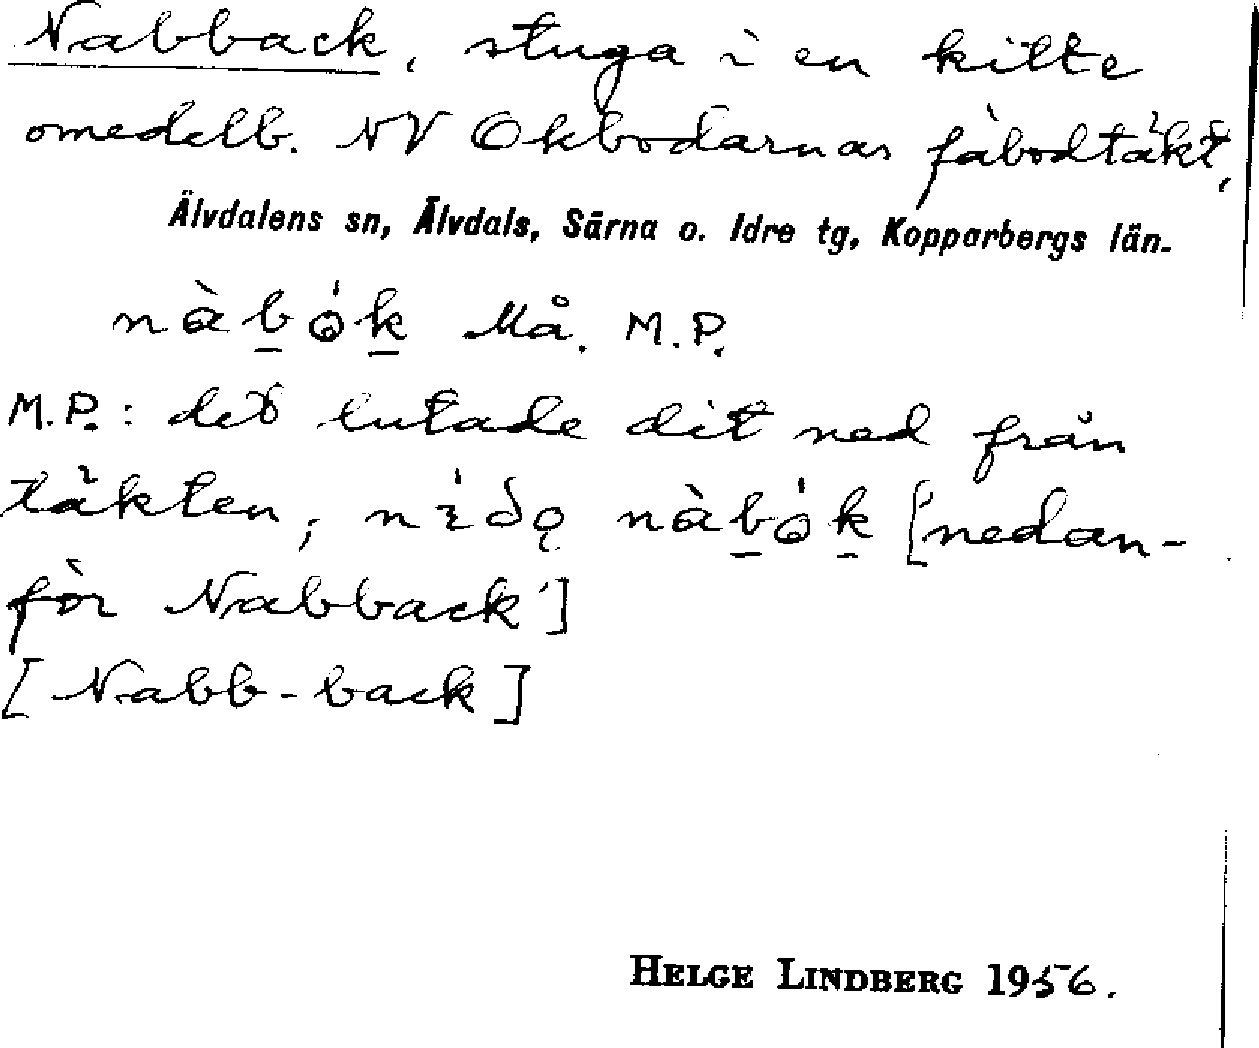 Nabback, stuga i en kilte
omedelb. NV Okbodarnas fäbodtäkt,
Älvdalens sn, Älvdals, Särna o. Idre tg, Kopparbergs län.
nàb̲ók̲ Må. M.P.
M.P.: det lutade dit ned från
täkten, nab̲ók̲ [nedan-
för Nabback']
[Nabb-back]
HELGE LINDBERG 1956.